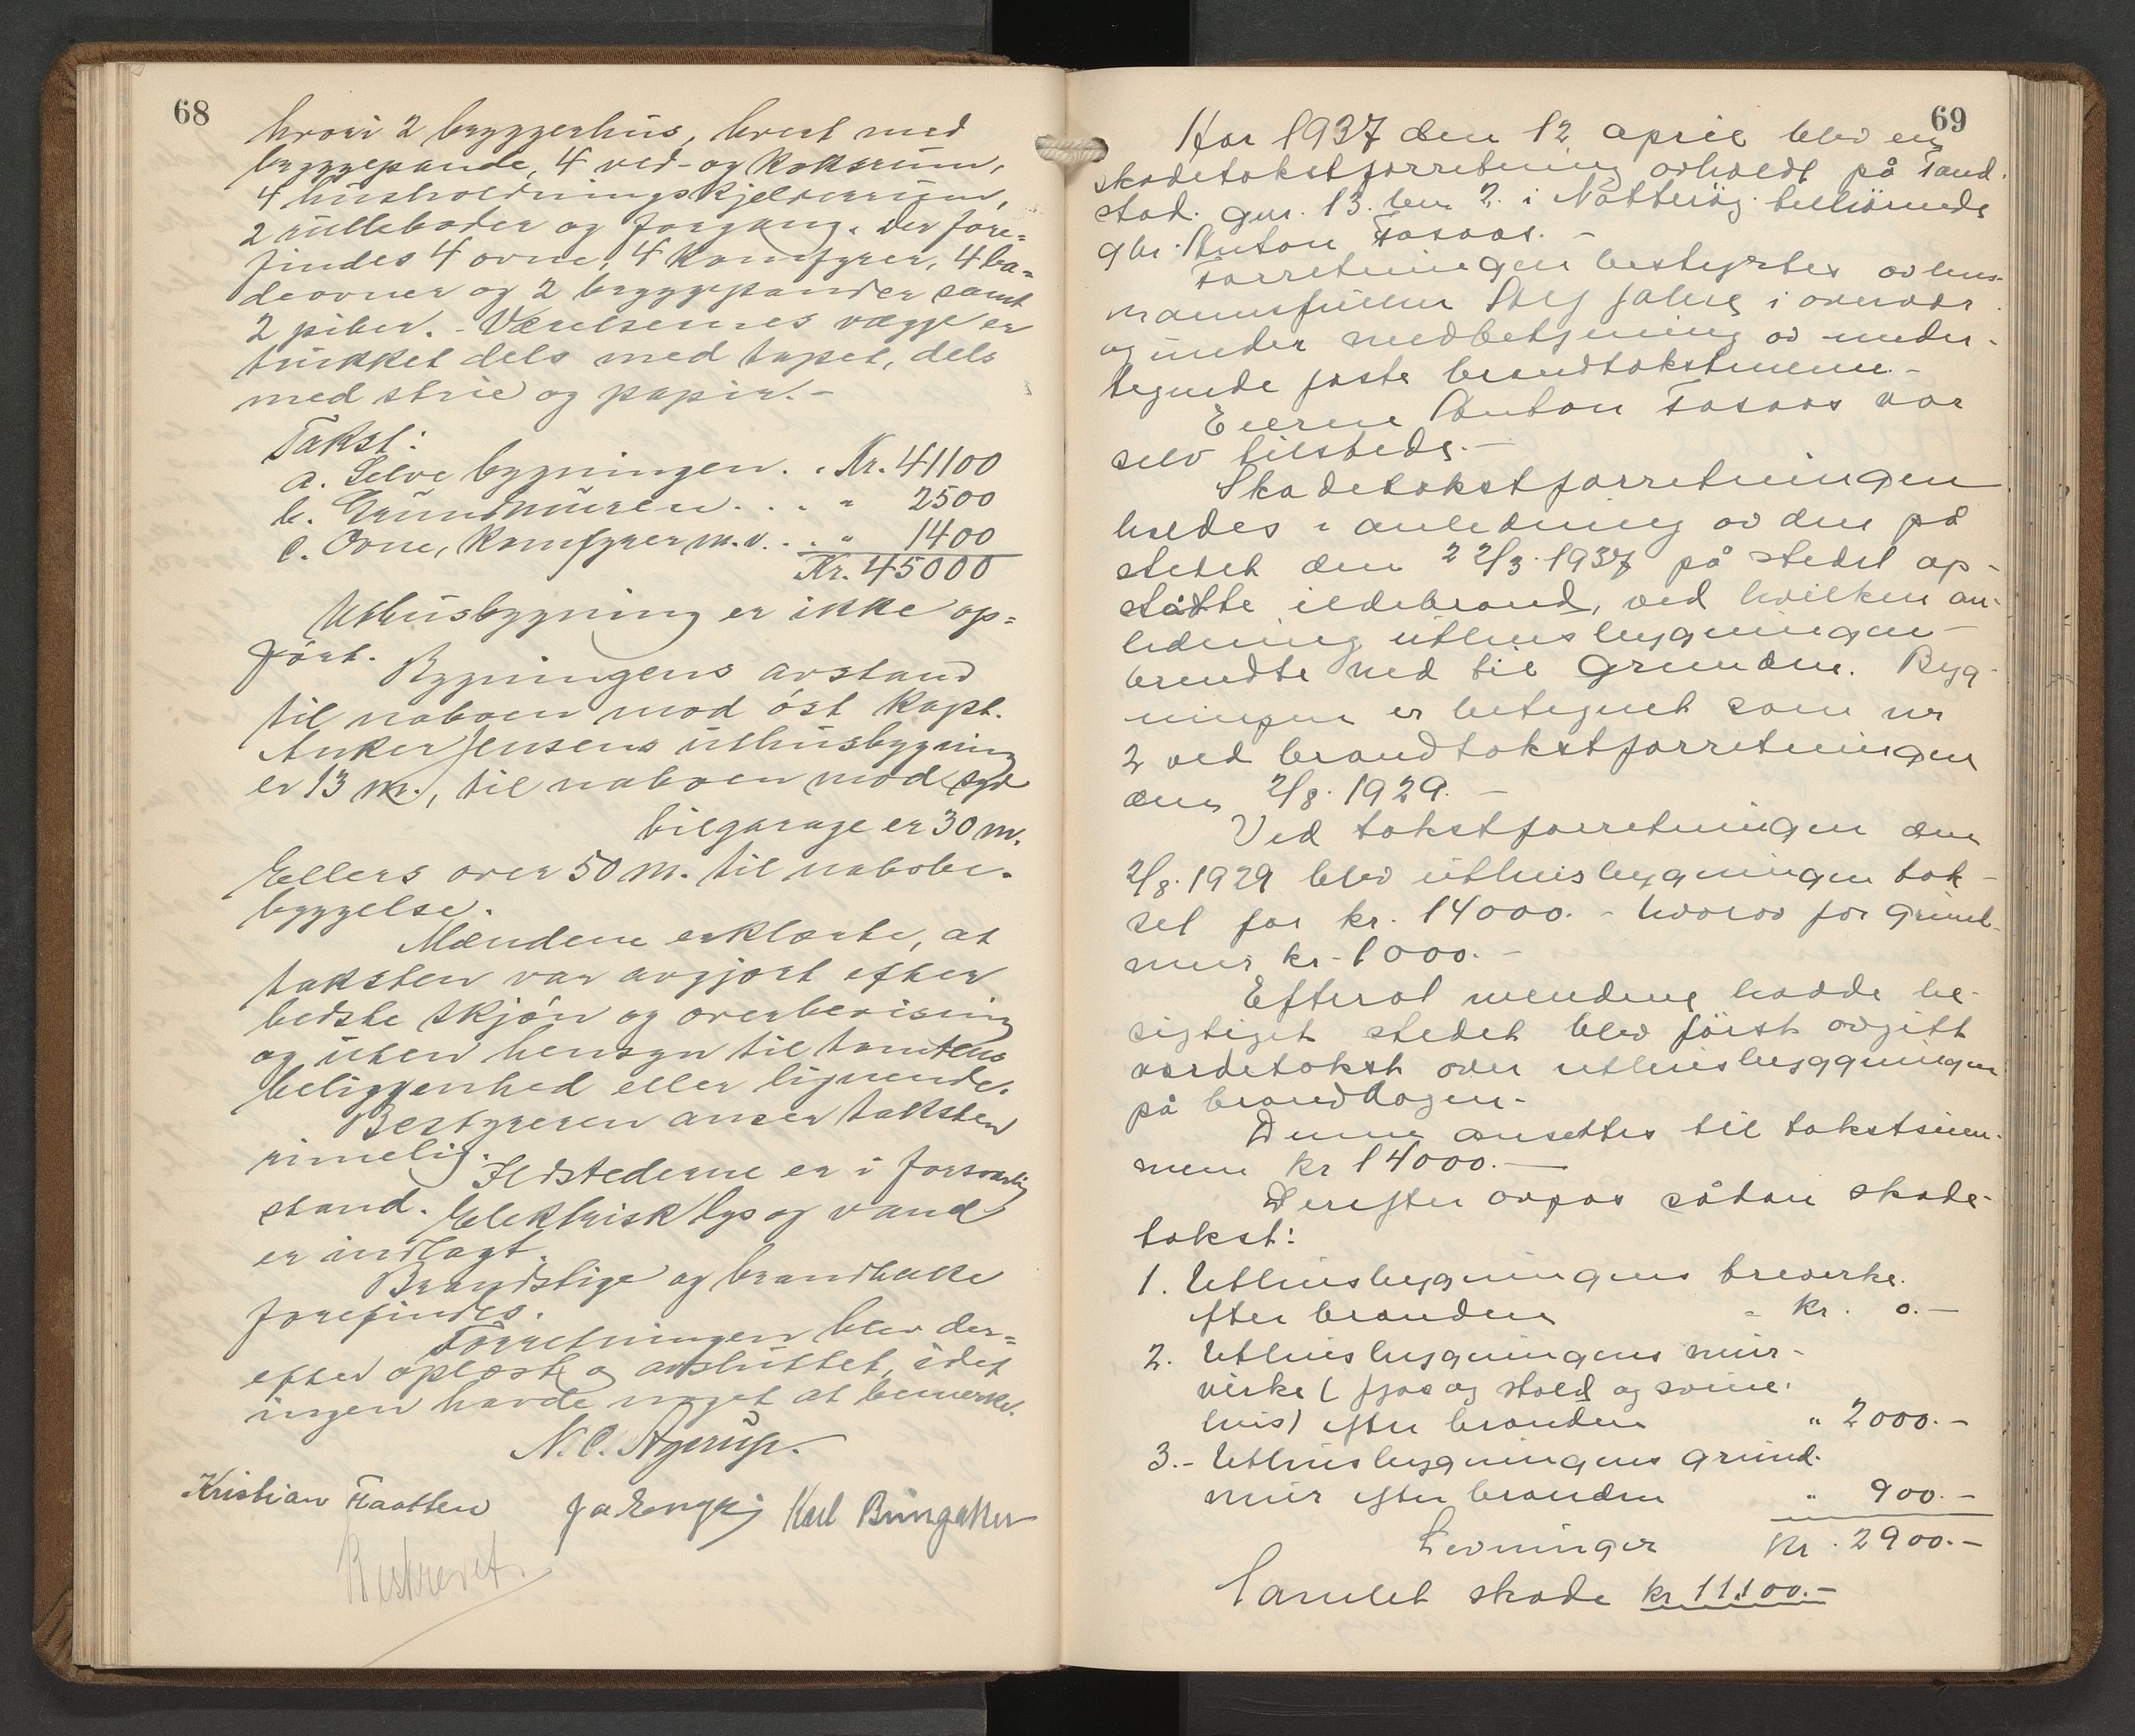 68
hvori 2 bryggerhus, hvert med
bryggepande, 4 ved- og koksrum,
4 husholdningskjelderrum,
2 rulleboder og forgang. Der fore=
findes 4 ovne, 4 komfyrer, 4 ba=
deovner og 2 bryggepander samt
2 piber. - Værelsernes vægge er
trukket dels med tapet, dels
med strie og papir. -
Takst:
a. Selve bygningen. . Kr. 41100
b. Grundmuren. . . . " 2500
c. Ovne, komfyrer m.v. . . " 1400
Kr. 45000
Uthusbygning er ikke op=
ført.
Bygningens avstand
til naboen mod øst Kapt.
Anker Jensens uthusbygning
er 13 m., til naboen mod syd
bilgarage er 30 m.
Ellers over 50 m. til nabobe-
byggelse.
Mændene erklærte, at
taksten var avgjort efter
bedste skjøn og overbevisning
og uten hensyn til tomtens
beliggenhed eller lignende.
Bestyreren anser taksten
rimelig.
Ildstederne er i forsvarlig
stand. Elektrisk lys og vand
er indlagt.
Brandstige og brandhake
forefindes.
Forretningen blev der=
efter oplæst og avsluttet, idet
ingen havde noget at bemerke.
N. C. Agerup.
Kristian Haatten Karl Bringaker
Beskrevet.
69
Aar 1937 den 12 april blev en
skadetakstforretning avholdt på Tand-
stad. gnr. 13. bnr 2. i Nøtterøy. tilhørende
gbr. Anton Fosaas. -
Forretningen bestyrtes av lens-
mannsfullm i overvær
og under medbetjening av under-
tegnede faste brandtakstmenn. -
Eieren Anton Fosaas var
selv tilstede. -
Skadetakstforretningen
holdes i anledning av den på
stedet den 22/3. 1937 på stedet op-
ståtte ildebrand, ved hvilken an-
ledning uthusbygningen
brendte ned til grunden. Byg-
ningen er betegnet som nr
2 ved brandtakstforretningen
den 2/8. 1929. -
Ved takstforretningen den
2/8. 1929 blev uthusbygningen tak-
sert for kr. 14000. - hvorav for grund-
mur kr. 1000. -
Efterat mendene hadde be-
sigtiget stedet blev først avgitt
verditakst over uthusbyggningen
på branddagen. -
Denne ansettes til takstsum-
men kr 14000. -
Derefter avgas sådan skade-
takst:
1. Uthusbygningens treverke.
efter branden - kr. 0. -
2. Uthusbygningens mur-
virke (fjøs og stald og svine-
hus) efter branden " 2000. -
3. - Uthusbygningens grund-
mur efter branden " 900. -
Levninger kr. 2900. -
Samlet skade kr 11.100. -